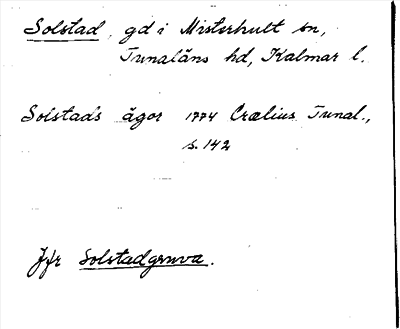 Solstad, gd i Misterhult sn,
Tunaläns hd, Kalmar l.
Solstads ägor 1774 Crælius Tunal.,
s. 142
Jfr Solstadgruva.